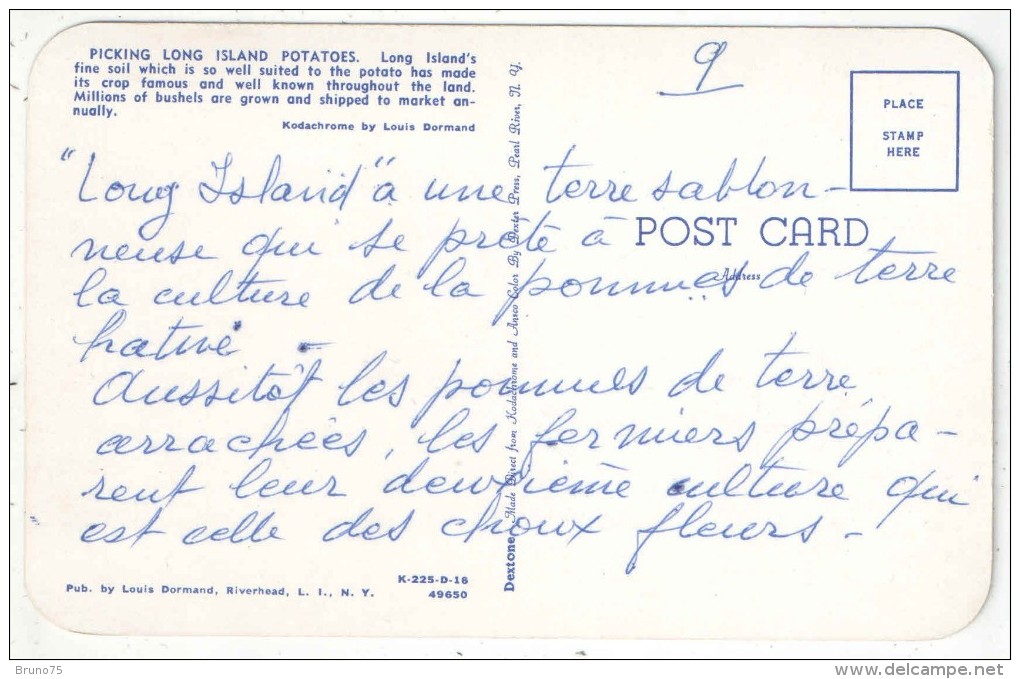 PICKING LONG ISLAND POTATOES. Long Island's
fine soil which is so well suited to the potato has made
its crop famous and well known throughout the land.
Millions of bushels are grown and shipped to market an-
nually.
Kodachrome by Louis Dormand
9
PLACE
STAMP
HERE
"Long Island" a une terre sablon-
neuse qui se prête à
POST CARD
Address
la culture de la pommes de terre
hative -
Aussitôt les pommes de terre
arrachées, les fermiers prépa-
rent leur deuxième culture qui
est celle des choux fleurs -
Dextone Made Direct from Kodachrome and Ansco Color By Dexter Press, Pearl River, N. Y.
K-225-D-16
Pub. by Louis Dormand, Riverhead, L. I., N. Y.
49650
Bruno75
www.delcampe.net